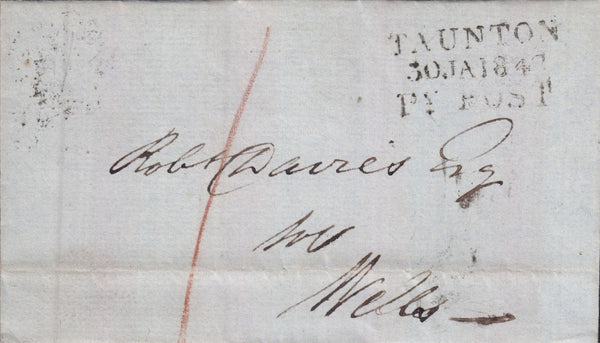 TAUNTON
30JA184
PY POST
Robt Davies Esq
Wells